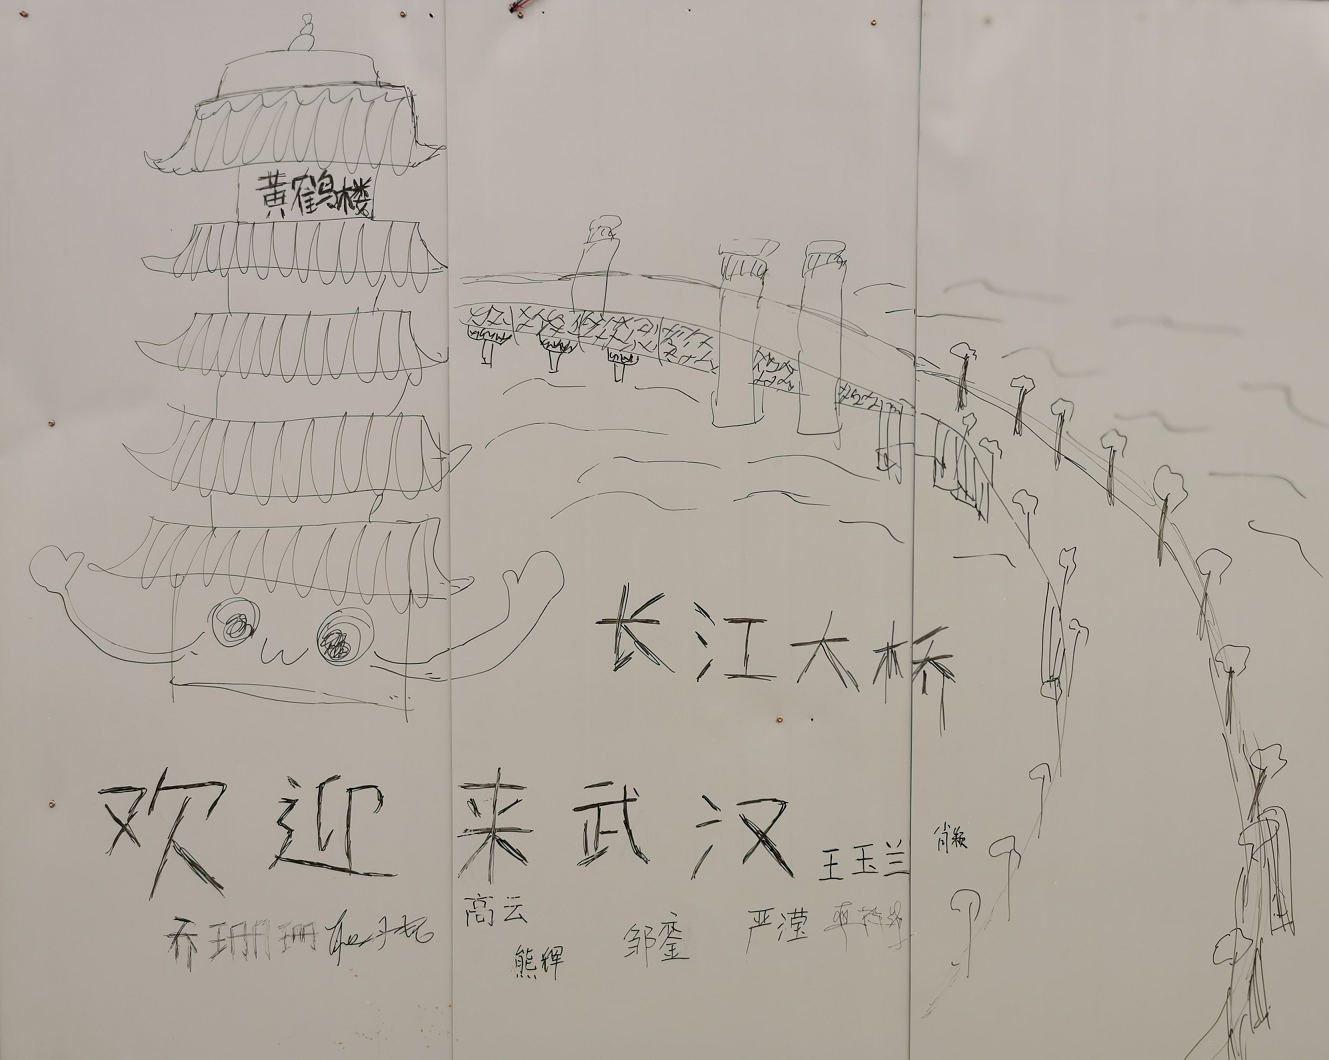 黄鹤楼
长江大桥
欢迎来武汉
王玉兰
肖颖
乔珊珊
高云
熊辉
邹銮
严滢